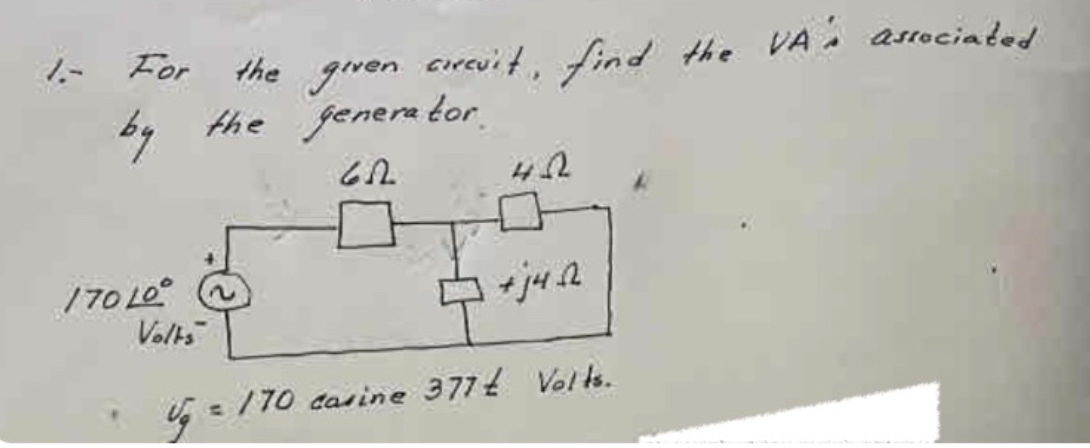 1.- For the given circuit, find the VA's associated
by the generator.
6Ω 4Ω
+
170∠0° +j4Ω
Volts -
vg = 170 cosine 377t Volts.